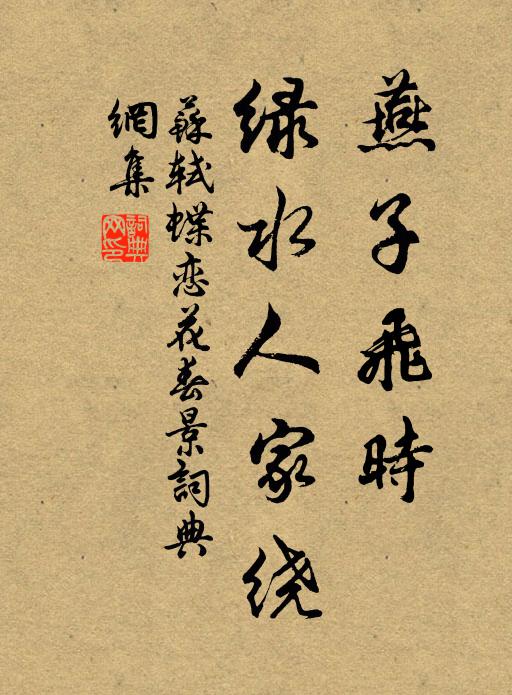 燕子飛時
绿水人家绕
蘇軾蝶恋花春景詞典
網集
詞典網印